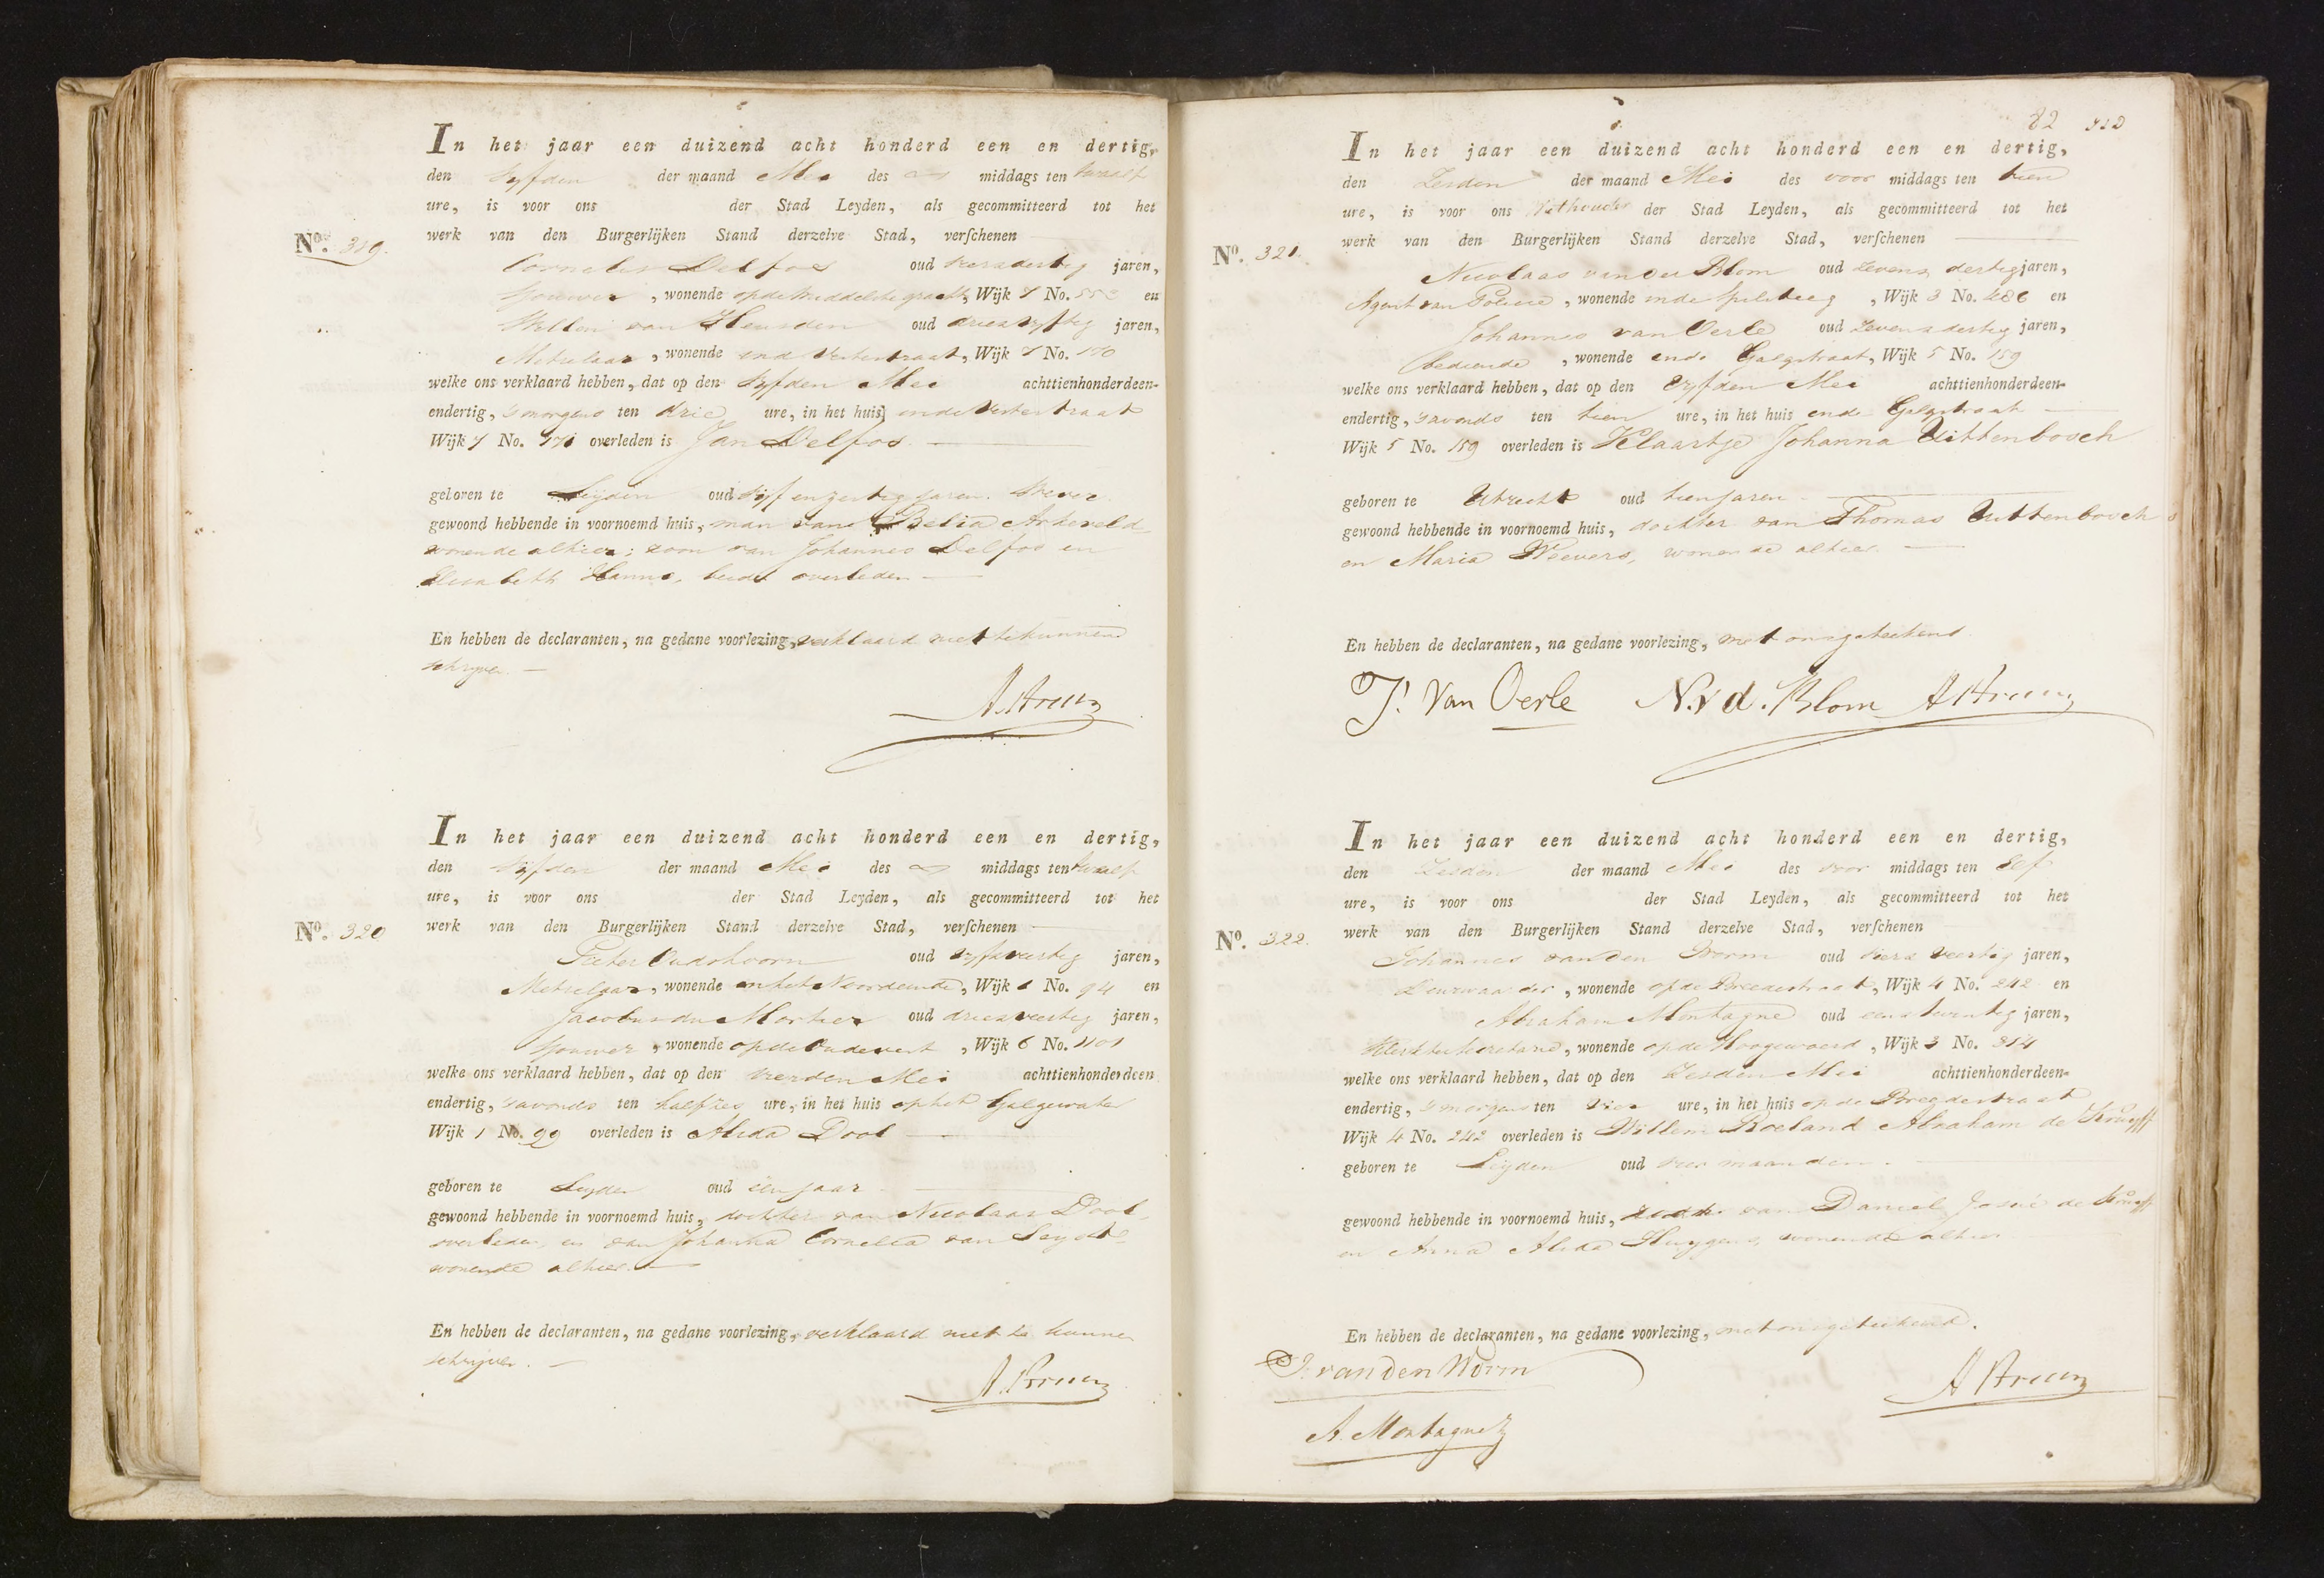 In het jaar een duizend acht honderd een en dertig,
den Vijfden der maand Mei des middags ten twaalf
ure, is voor ons der Stad Leyden, als gecommitteerd tot het
No. 319. werk van den Burgerlijken Stand derzelve Stad, verschenen
Cornelis Delfos oud vierendertig jaren,
Sjouwer, wonende op de Middelstegracht, Wijk 7 No. 553 en
Willem van Heusden oud drieenvyftig jaren,
Metselaar, wonende in de Vesterstraat, Wijk 7 No. 170
welke ons verklaard hebben, dat op den Vyfden Mei achttienhonderdeen-
endertig, smorgens ten drie ure, in het huis in de Vesterstraat
Wijk 7 No. 171 overleden is Jan Delfos
geboren te Leyden oud Vijf en zestig jaren. Wever
gewoond hebbende in voornoemd huis, man van Belia Arkeveld
wonende alhier; zoon van Johannes Delfos en
Elisabeth Hanne, beide overleden
En hebben de declaranten, na gedane voorlezing, verklaard niet te kunnen
schryven.
In het jaar een duizend acht honderd een en dertig,
den Vijfden der maand Mei des middags ten twaalf
ure, is voor ons der Stad Leyden, als gecommitteerd tot het
No. 320 werk van den Burgerlijken Stand derzelve Stad, verschenen
Pieter Oudshoorn oud vyfenveertig jaren,
Metselaar, wonende in het Noordeinde, Wijk 1 No. 94 en
Jacobus du Mortier oud drieenveertig jaren,
Sjouwer, wonende op de Oudevest, Wijk 6 No. 1101
welke ons verklaard hebben, dat op den vierden Mei achttienhonderdeen
endertig, savonds ten halfzes ure, in het huis op het Galgewater
Wijk 1 No. 99 overleden is Alida Dool
geboren te Leyden oud een jaar
gewoond hebbende in voornoemd huis, dochter van Nicolaas Dool,
overleden, en van Johanna Cornelia van
wonende alhier.
En hebben de declaranten, na gedane voorlezing, verklaard niet te kunnen
schrijven.
82
In het jaar een duizend acht honderd een en dertig,
den Zesden der maand Mei des voor middags ten tien
ure, is voor ons Wethouder der Stad Leyden, als gecommitteerd tot het
No. 321. werk van den Burgerlijken Stand derzelve Stad, verschenen
Nicolaas van der Blom oud zevenendertig jaren,
Agent van Policie, wonende in de Spilsteeg, Wijk 3 No. 486 en
Johannes van Oerle oud zevenendertig jaren,
bediende, wonende in de Galgstraat, Wijk 5 No. 159
welke ons verklaard hebben, dat op den Vyfden Mei achttienhonderdeen-
endertig, savonds ten tien ure, in het huis in de Galgstraat
Wijk 5 No. 159 overleden is Klaartje Johanna Uittenbosch
geboren te Utrecht oud tien jaren
gewoond hebbende in voornoemd huis, dochter van Thomas Uittenbosch
en Maria Weevers, wonende alhier.
En hebben de declaranten, na gedane voorlezing, met ons geteekend
J. van Oerle N. v d. Blom
In het jaar een duizend acht honderd een en dertig,
den Zesden der maand Mei des voor middags ten Elf
ure, is voor ons der Stad Leyden, als gecommitteerd tot het
No. 322. werk van den Burgerlijken Stand derzelve Stad, verschenen
Johannes van den Worm oud vierenveertig jaren,
Deurwaarder, wonende op de Breedestraat, Wijk 4 No. 242 en
Abraham Montagne oud eenentwintig jaren,
Klerk ter Secretarie, wonende op de Hoogewoerd, Wijk 3 No. 314
welke ons verklaard hebben, dat op den Zesden Mei achttienhonderdeen-
endertig, smorgens ten vier ure, in het huis op de Breedestraat
Wijk 4 No. 242 overleden is Willem Roeland Abraham de Kruyff
geboren te Leyden oud vier maanden.
gewoond hebbende in voornoemd huis, zoon van Daniel Josué de Kruyff
en Anna Alida Huygens, wonende alhier
En hebben de declaranten, na gedane voorlezing, met ons geteekend.
J. van den Worm
A. Montagne